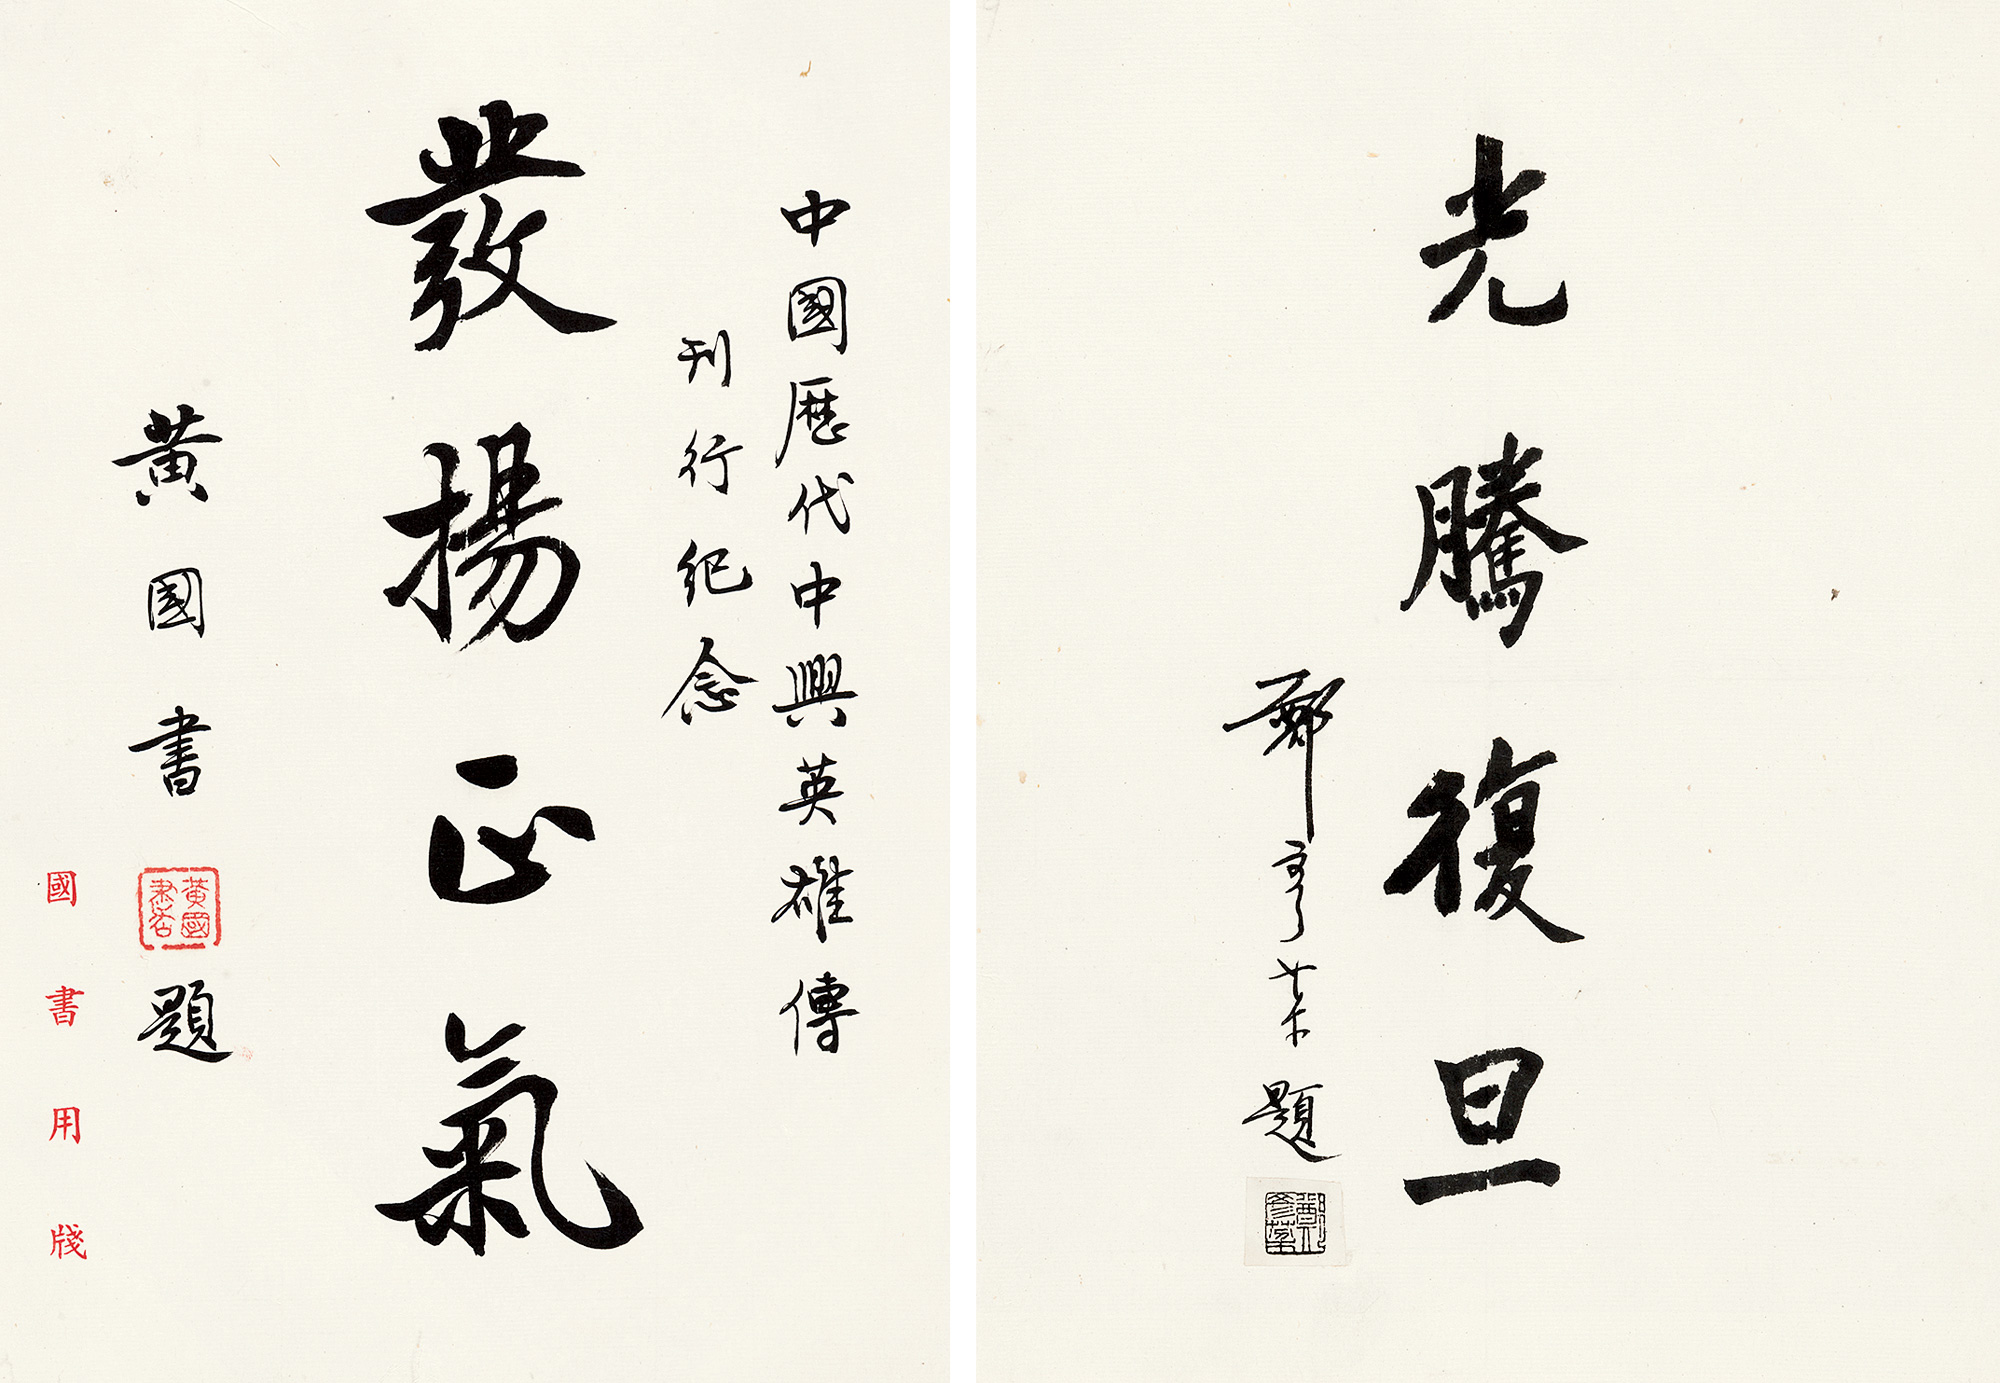 光騰復旦
鄭彥棻題
中國歷代中興英雄傳
刊行紀念
發揚正氣
黃國書題
國書用牋